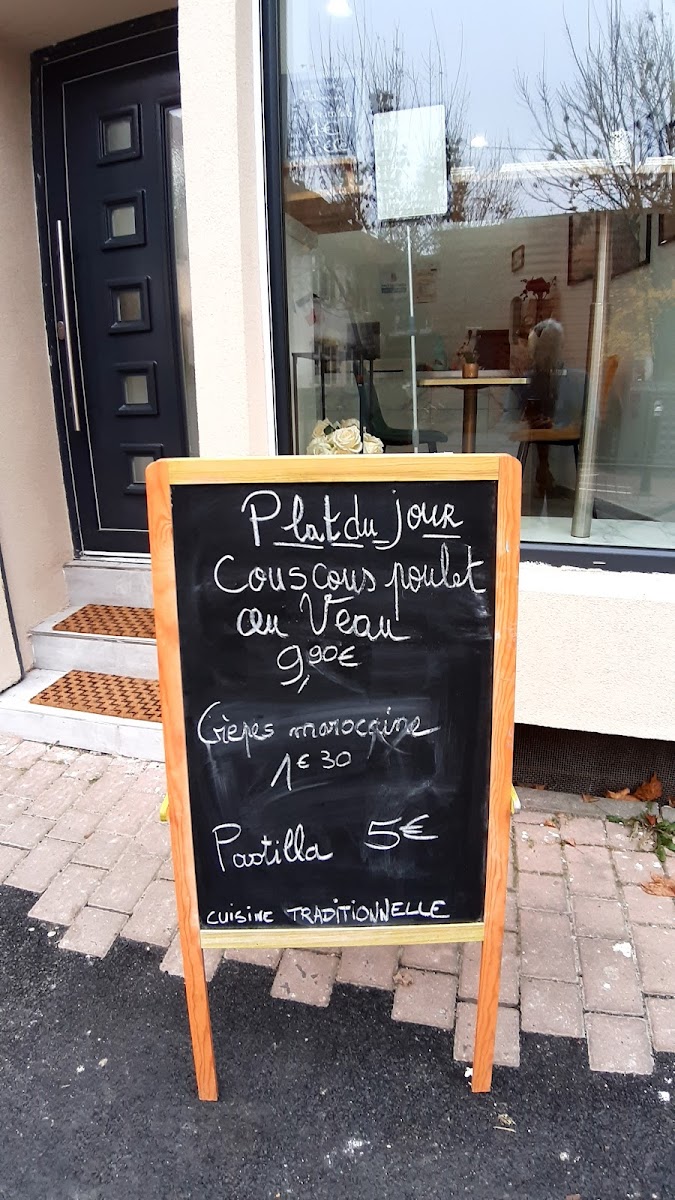 Plat du jour
Couscous poulet
ou Veau
9,90€
Crèpes marocaine
1€30
Pastilla 5€
CUISINE TRADITIONNELLE